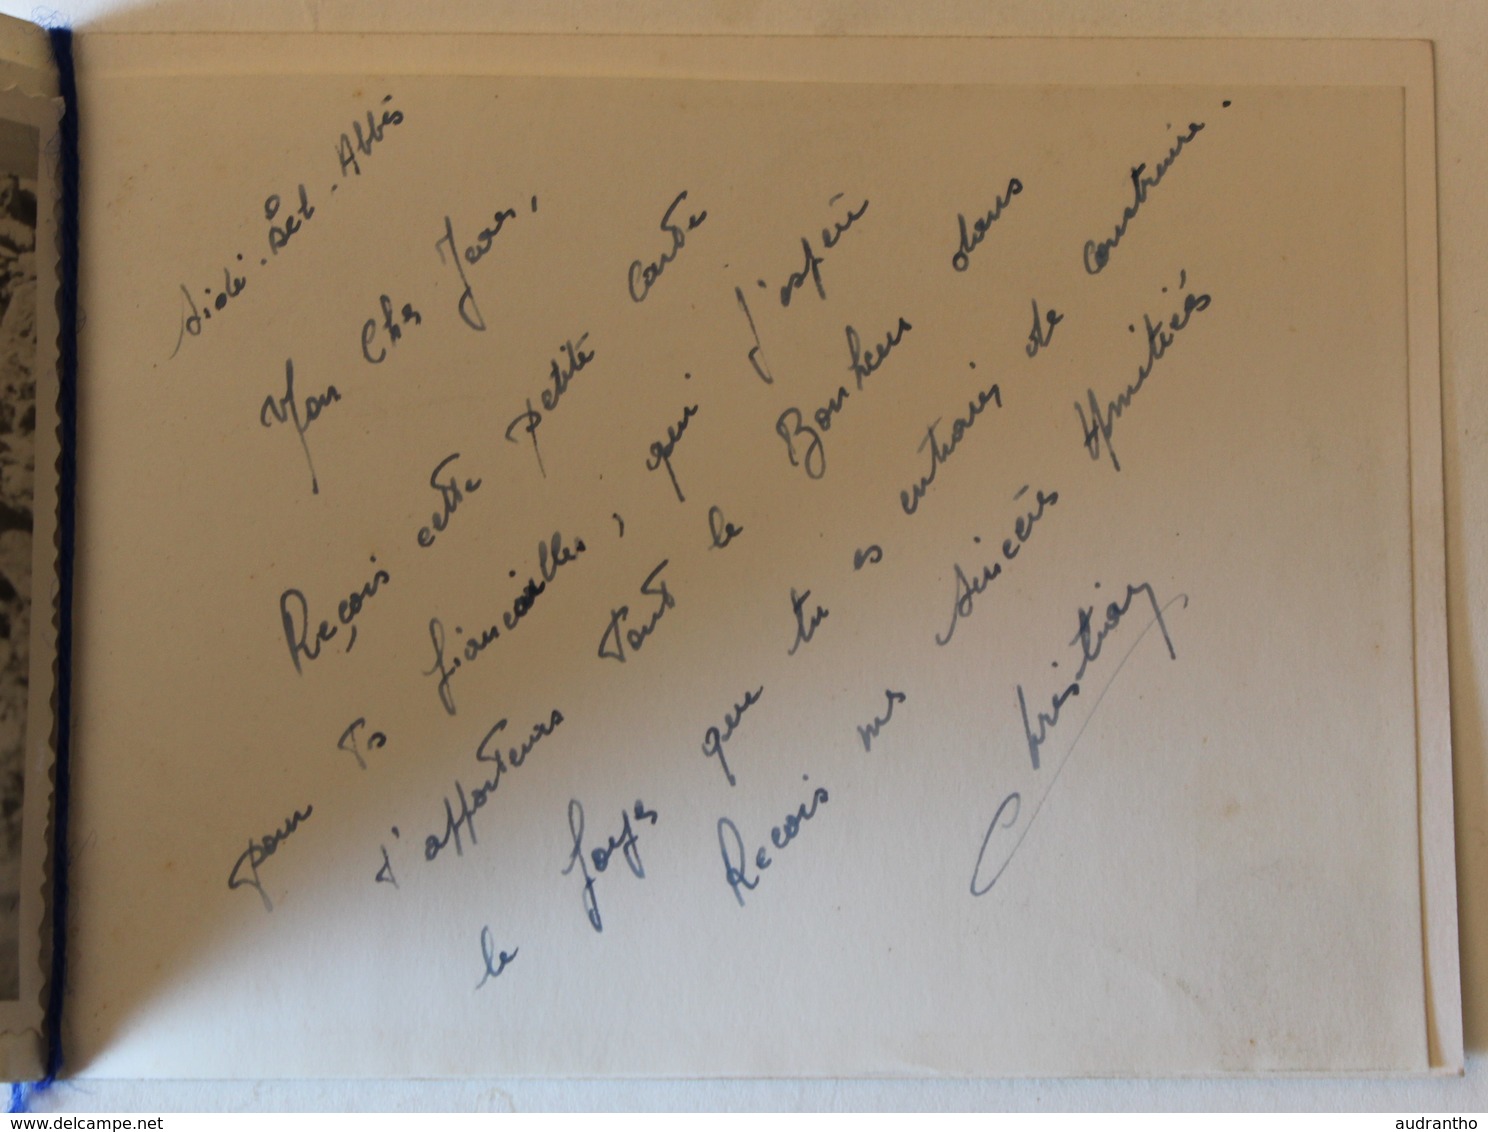 Sidi-Bel-Abbès
Mon Cher Jean,
Reçois cette petite carte
pour ta fiançailles, qui j'espère
t'apporteras tout le Bonheur dans
le foyer que tu es entrain de construire.
Reçois mes sincères Amitiés
Christian
www.delcampe.net
audrantho